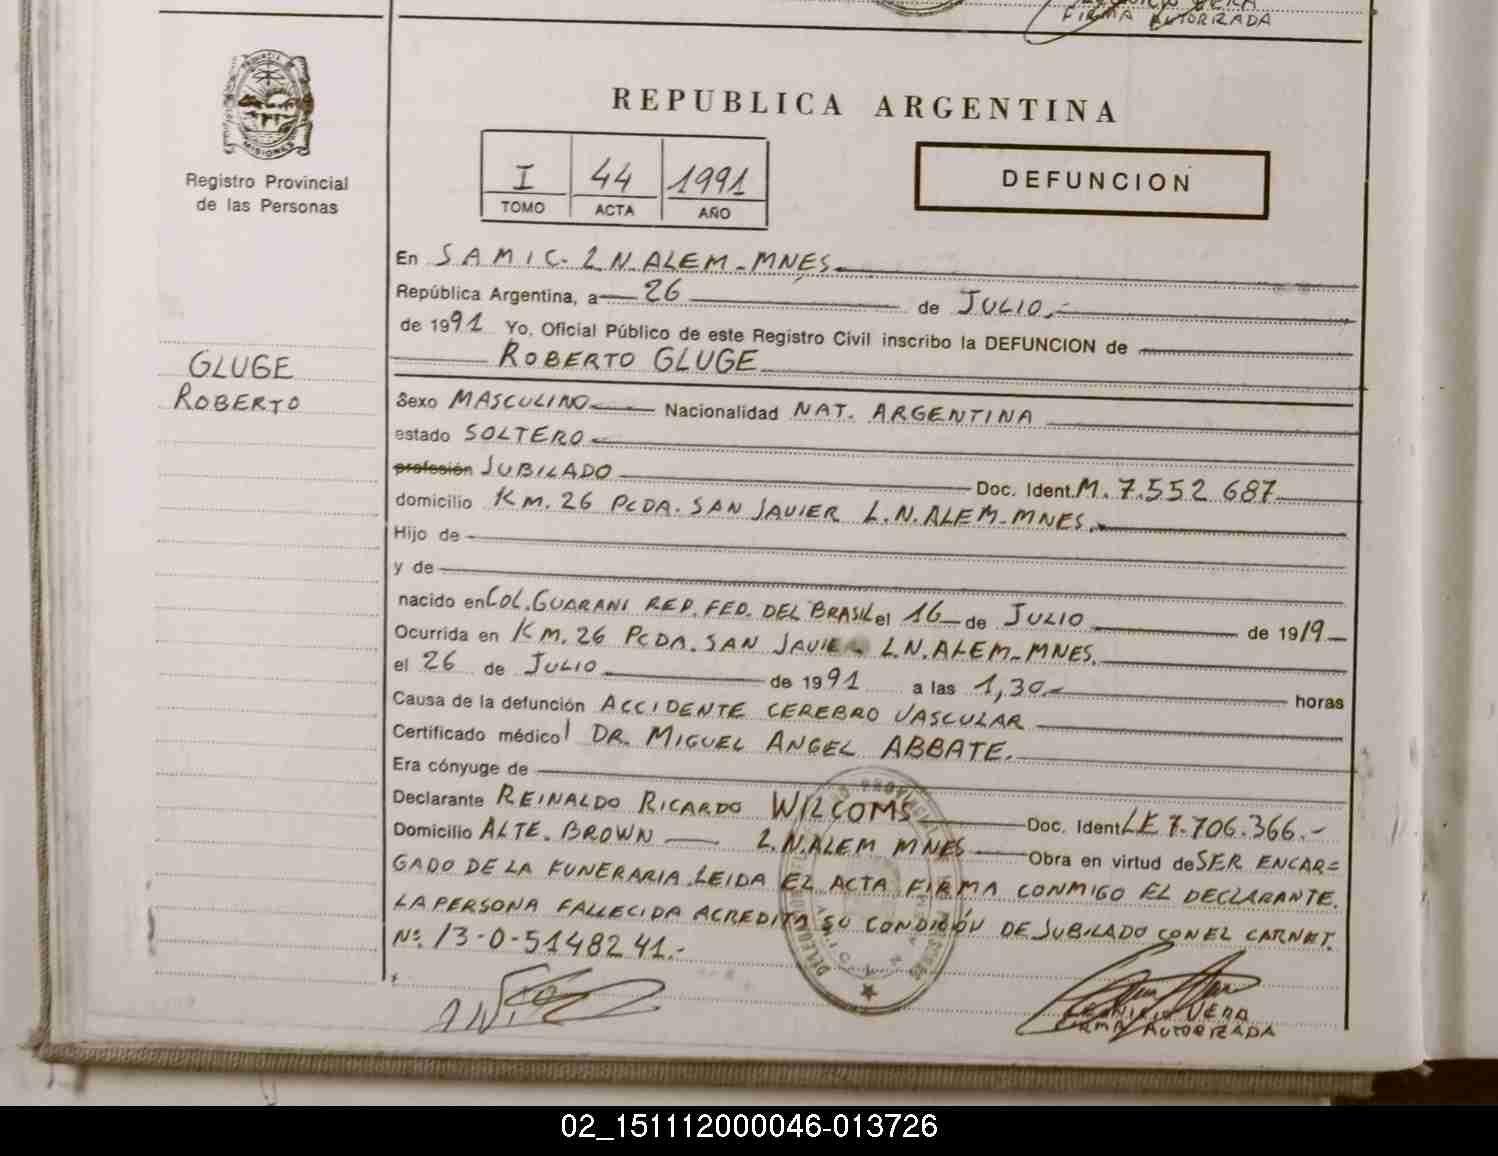 FIRMA AUTORIZADA
MISIONES
Registro Provincial
de las Personas
REPUBLICA ARGENTINA
I 44 1991
TOMO ACTA AÑO
DEFUNCION
En SAMIC. L N. ALEM - MNES.
República Argentina, a 26 de JULIO.-
de 1991 Yo, Oficial Público de este Registro Civil inscribo la DEFUNCION de
ROBERTO GLUGE
GLUGE
ROBERTO
Sexo MASCULINO Nacionalidad NAT. ARGENTINA
estado SOLTERO
profesión JUBILADO Doc. Ident. M. 7.552 687
domicilio KM. 26 PCDA. SAN JAVIER L.N. ALEM - MNES.
Hijo de
y de
nacido en COL. GUARANI REP. FED. DEL BRASIL el 16 de JULIO de 1919
Ocurrida en KM. 26 PCDA. SAN JAVIE L.N. ALEM - MNES.
el 26 de JULIO de 1991 a las 1,30.- horas
Causa de la defunción ACCIDENTE CEREBRO VASCULAR
Certificado médico DR. MIGUEL ANGEL ABBATE.
Era cónyuge de
Declarante REINALDO RICARDO WILCOMS Doc. Ident. LE 7.706.366.-
Domicilio ALTE. BROWN L.N. ALEM MNES Obra en virtud de SER ENCAR=
GADO DE LA FUNERARIA. LEIDA EL ACTA FIRMA CONMIGO EL DECLARANTE.
LA PERSONA FALLECIDA ACREDITA SU CONDICIÓN DE JUBILADO CON EL CARNET.
Nº. 13-0-5148241.-
VERA
FIRMA AUTORIZADA
02_151112000046-013726